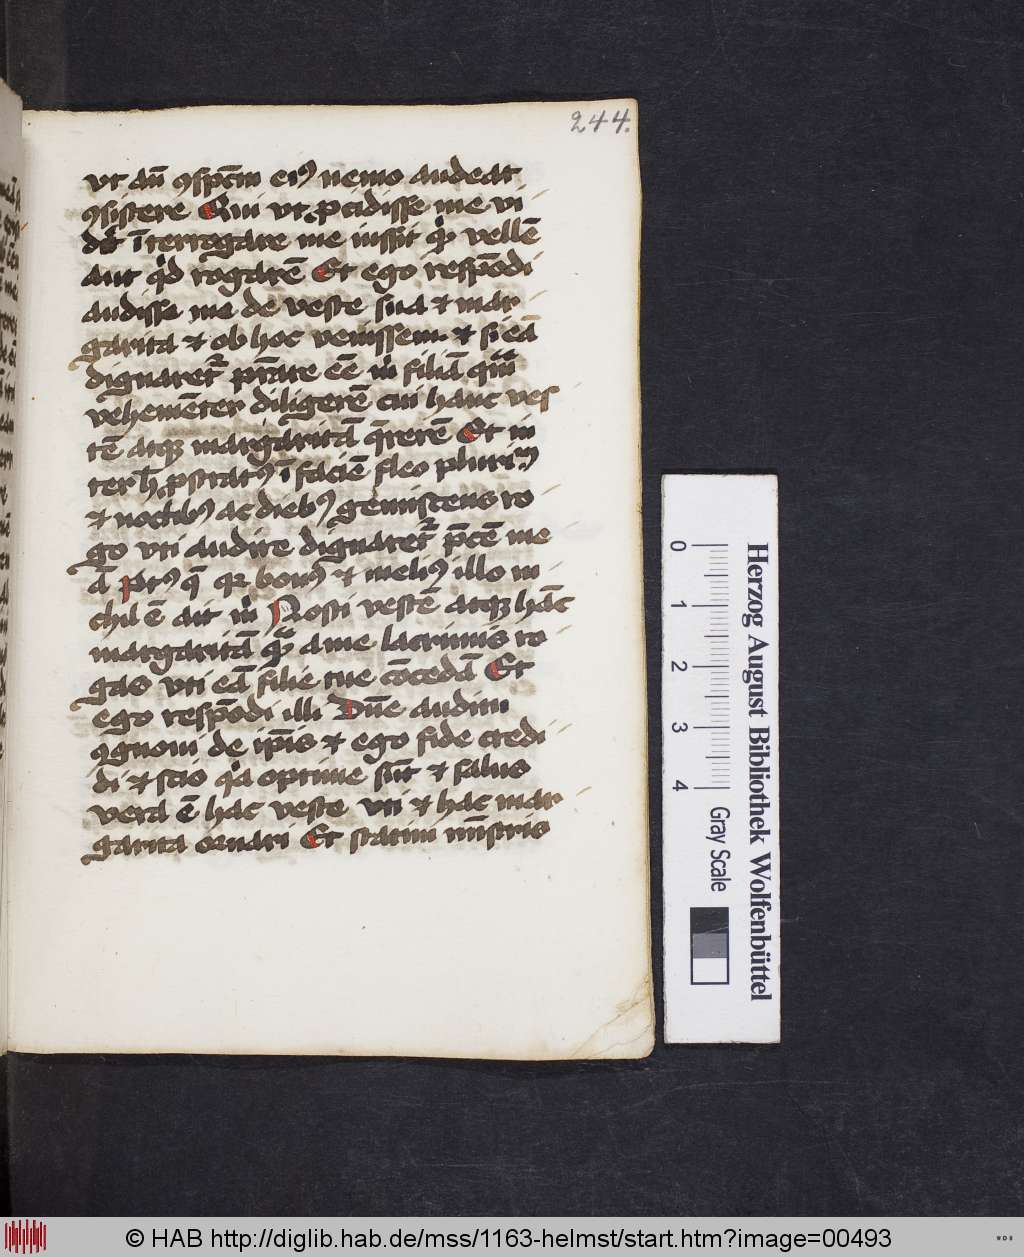 244.
vt an̄ ꝯspc̄m eiꝰ nemo audeat
ꝯsistere Qui vt ꝓcidisse me vi
det īterrogare me iussit qͥd vellē
aut qͥd rogarē Et ego respōdi
audisse me de veste sua ⁊ mar
garita ⁊ ob hoc venissem ⁊ si eā
dignaret᷑ p̄stare eē m̄ filiā quā
vehemēter diligerē cui hanc ves
tē atqꝫ margaritā q̄rerē Et in
terrā ꝓstratꝰ ī faciē fleo plurimū
⁊ noctibꝰ ac diebꝰ gemiscens ro
go vti audire dignaret᷑ p̄cē me
ā bonꝰ ⁊ meliꝰ illo ni
chil ē ait m̄ Nosti vestē atqꝫ hāc
margaritā quā a me lacrimis ro
gas vti eā filie tue cōcedā Et
ego respōdi illi Dn̄e audini
ꝯgnoui de ip̄is ⁊ ego fide credi
di ⁊ scio qͥa optime sūt ⁊ salus
vera ē hac veste vti ⁊ hac mar
garita ornari Et statim mīstris
Herzog August Bibliothek Wolfenbüttel
0 1 2 3 4
Gray Scale
© HAB http://diglib.hab.de/mss/1163-helmst/start.htm?image=00493